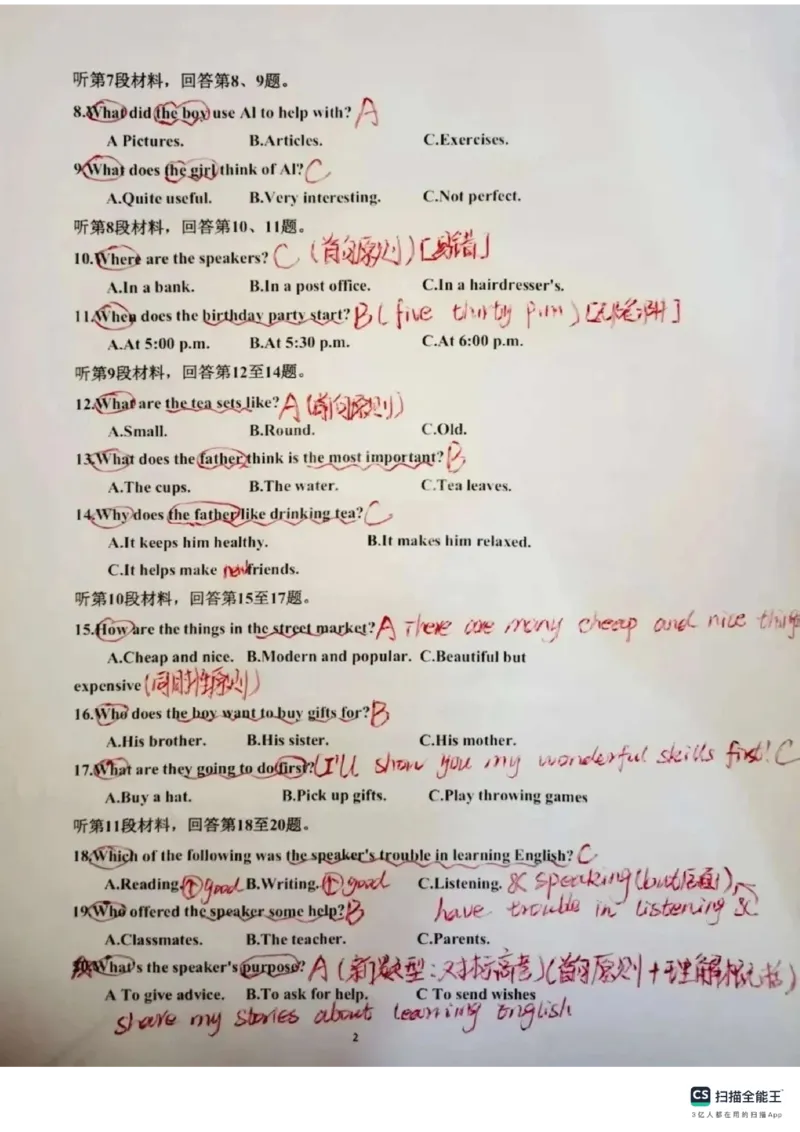 听第7段材料，回答第8、9题。
8.What did the boy use AI to help with? A
A Pictures. B.Articles. C.Exercises.
9.What does the girl think of AI? C
A.Quite useful. B.Very interesting. C.Not perfect.
听第8段材料，回答第10、11题。
10.Where are the speakers? C (首句原则) [易错]
A.In a bank. B.In a post office. C.In a hairdresser's.
11.When does the birthday party start? B (five thirty p.m)
A.At 5:00 p.m. B.At 5:30 p.m. C.At 6:00 p.m.
听第9段材料，回答第12至14题。
12.What are the tea sets like? A (首句原则)
A.Small. B.Round. C.Old.
13.What does the father think is the most important? B
A.The cups. B.The water. C.Tea leaves.
14.Why does the father like drinking tea? C
A.It keeps him healthy. B.It makes him relaxed.
C.It helps make new friends.
听第10段材料，回答第15至17题。
15.How are the things in the street market? A There are many cheap and nice things
A.Cheap and nice. B.Modern and popular. C.Beautiful but
expensive (同时性原则)
16.Who does the boy want to buy gifts for? B
A.His brother. B.His sister. C.His mother.
17.What are they going to do first? (I'll show you my wonderful skills first! C
A.Buy a hat. B.Pick up gifts. C.Play throwing games
听第11段材料，回答第18至20题。
18.Which of the following was the speaker's trouble in learning English? C
A.Reading. good B.Writing. good C.Listening. & speaking (but后面)
19.Who offered the speaker some help? B have trouble in listening &
A.Classmates. B.The teacher. C.Parents.
What's the speaker's purpose? A (新题型：对标高考) (首句原则+理解概括)
A To give advice. B.To ask for help. C To send wishes
share my stories about learning English
2
CS 扫描全能王
3亿人都在用的扫描App